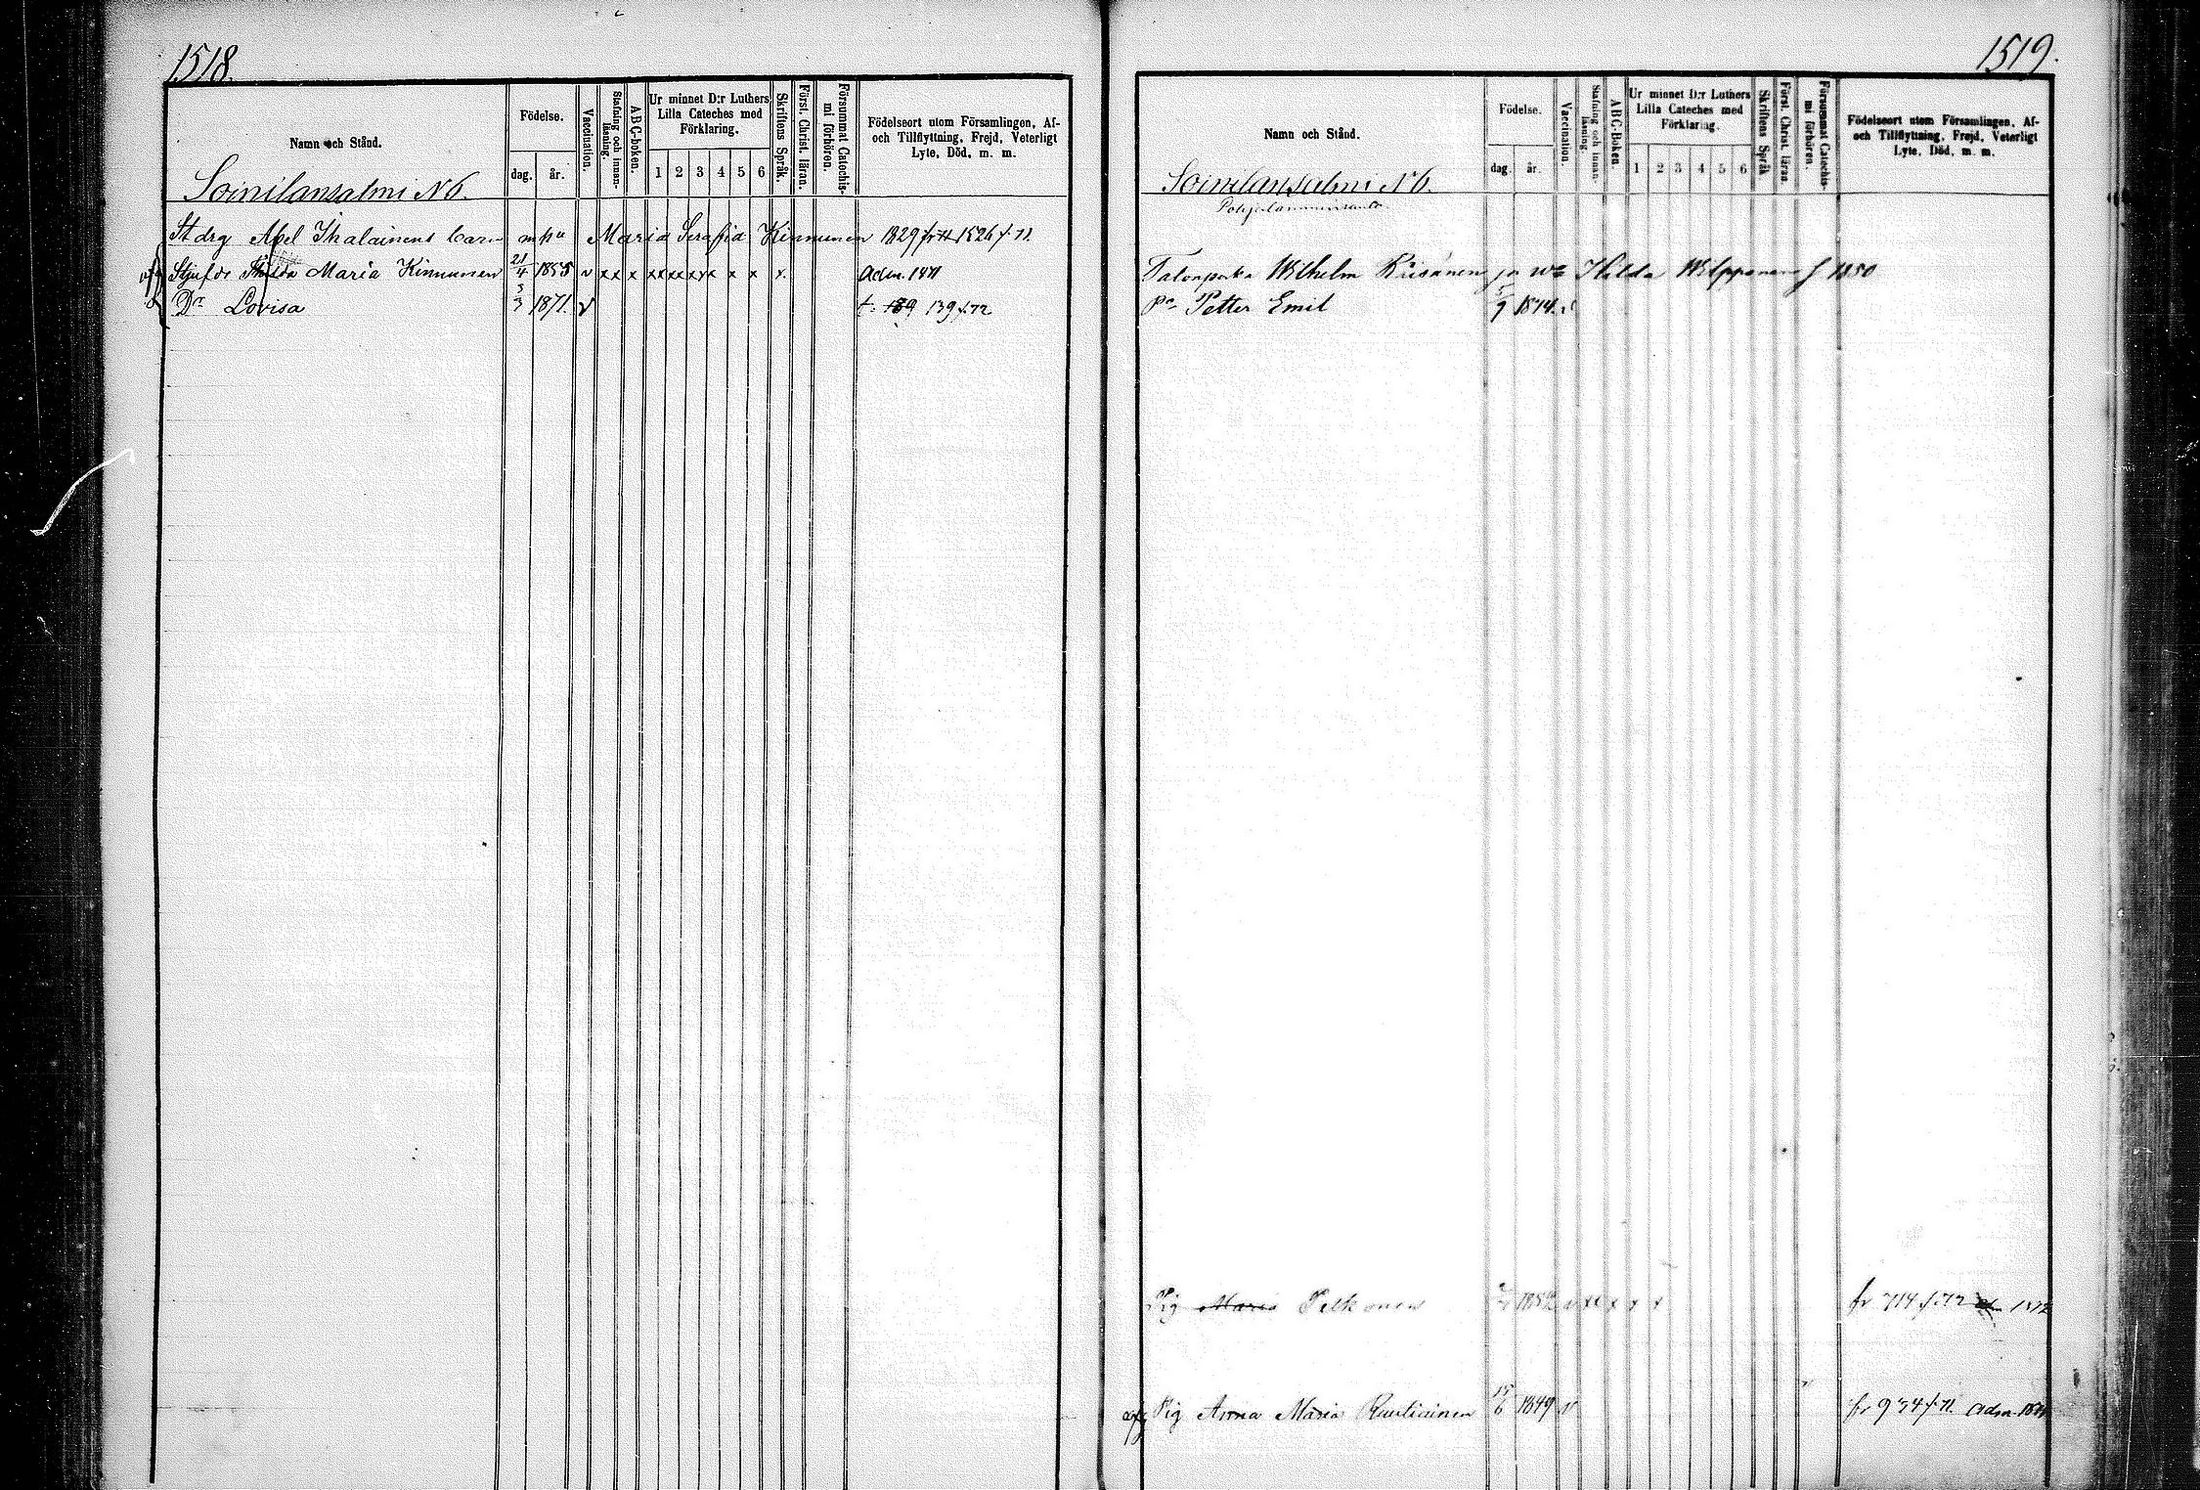 1518.
Namn och Stånd.
Födelse.
dag.
år.
Vaccination.
Stafning och innan-
läsning.
ABC-boken.
Ur minnet D:r Luthers
Lilla Cateches med
Förklaring.
1 2 3 4 5 6
Skriftens Språk.
Först. Christ. läran.
Försummat Catechis-
mi förhören.
Födelseort utom Församlingen, Af-
och Tillflyttning, Frejd, Veterligt
Lyte, Död, m. m.
Soinilansalmi N 6.
Stdrg Abel Ihalainens barn m h u Maria Serafia Kinnunen 1829 fr 1526 f. 71.
Stjufdr Maria Kinnunen 21/4 1855 v xx x x x x x x x x x Adm. 1871
Dr Lovisa 3/3 1871. v t. 139 f. 72
1519.
Namn och Stånd.
Födelse.
dag.
år.
Vaccination.
Stafning och innan-
läsning.
ABC-boken.
Ur minnet D:r Luthers
Lilla Cateches med
Förklaring.
1 2 3 4 5 6
Skriftens Språk
Först. Christ. läran.
Försummat Catechis-
mi förhören.
Födelseort utom Församlingen, Af-
och Tillflyttning, Frejd, Veterligt
Lyte, Död, m. m.
Soinilansalmi N 6.
Talonpoika Wilhelm Räisänen ja wo Hilda Wilpponen f 1850
Pa Petter Emil 5/9 1874. v
Pig Maria Pelkonen 1852 v xx x x x fr 714 f. 72 1872
afg Pig Anna Maria Rautiainen 15/6 1849 v fr 934 f. 71. Adm.